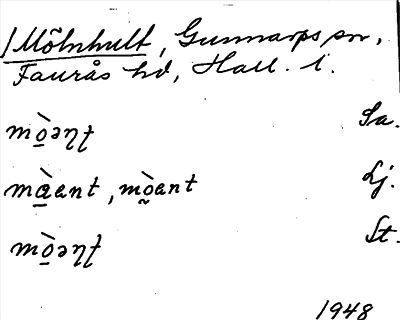 Mölnhult, Gunnarps sn,
Faurås hd, Hall. l.
mò̱əɳt Sa.
mà̱ant, mò̰ant Lj.
mò̱əɳt St.
1948